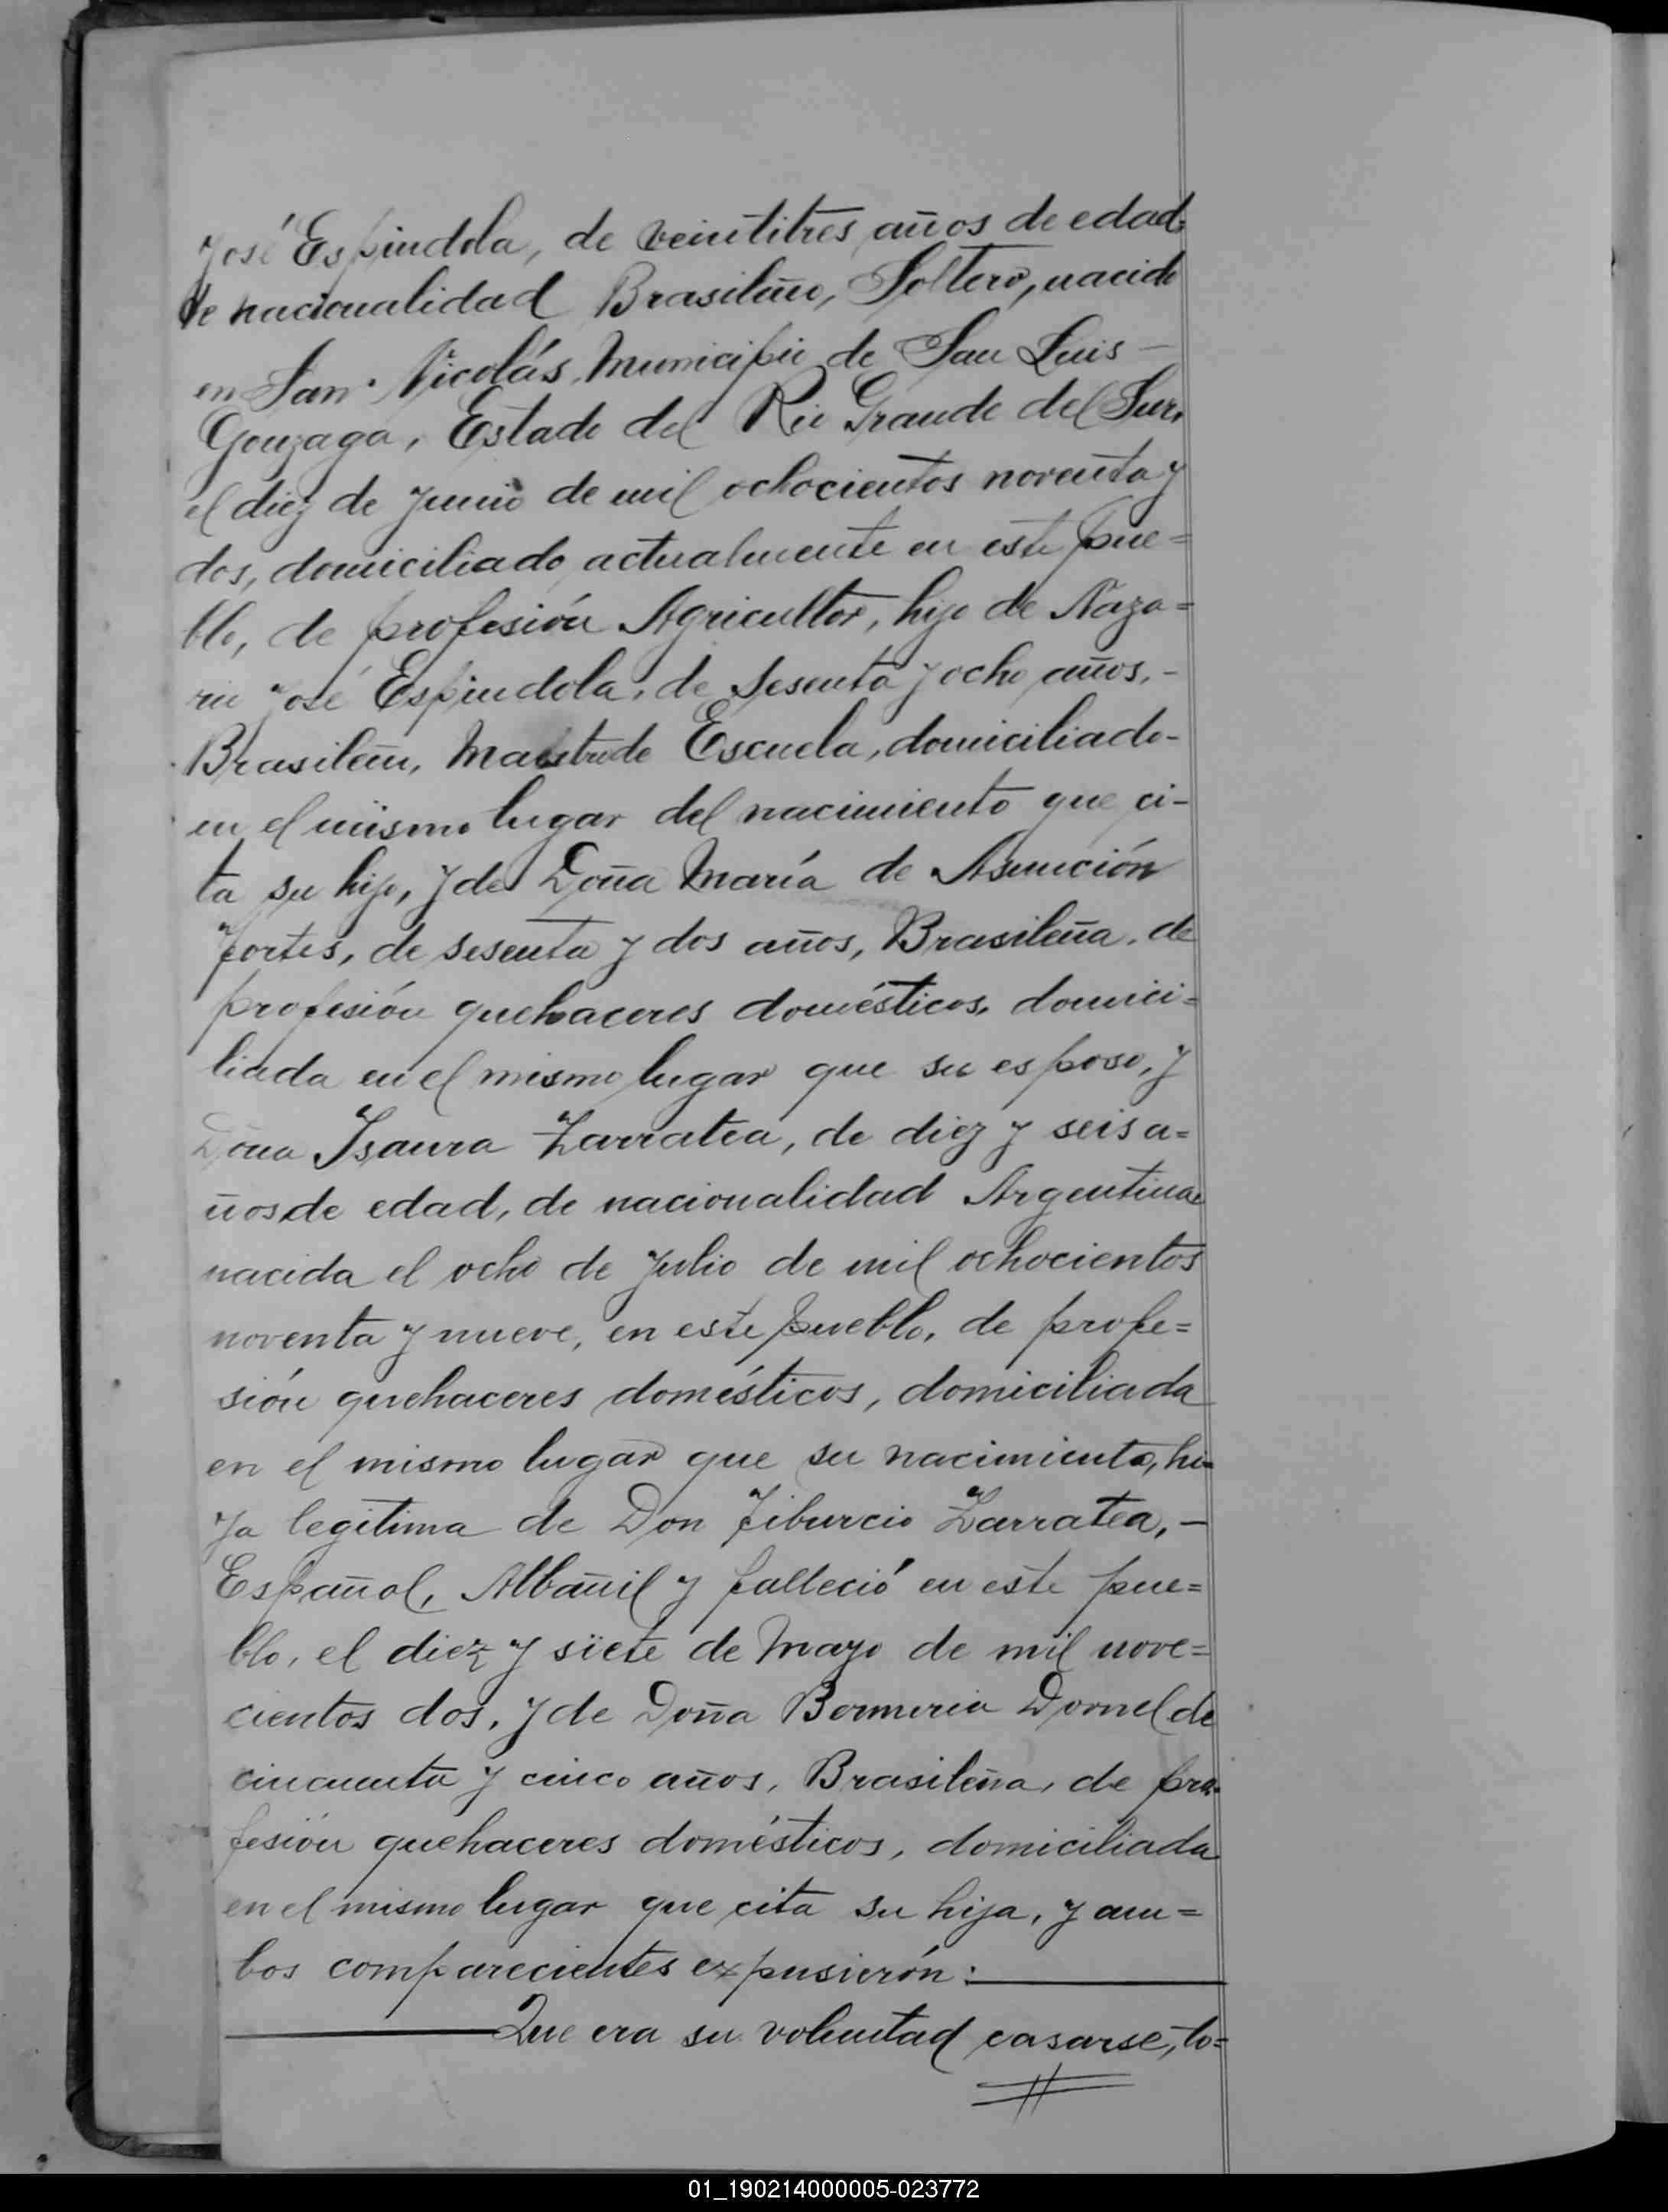 José Espindola, de veintitres años de edad
de nacionalidad Brasileño, Soltero, nacido
en San Nicolás, Municipio de San Luis —
Gonzaga, Estado del Rio Grande del Sur,
el diez de Junio de mil ochocientos noventa y
dos, domiciliado actualmente en este pue=
blo, de profesión Agricultor, hijo de Naza=
rio José Espindola, de sesenta y ocho años, -
Brasileño, Maestro de Escuela, domiciliado-
en el mismo lugar del nacimiento que ci-
ta su hijo, y de Doña María de Asunción
Fortes, de sesenta y dos años, Brasileña, de
profesión quehaceres domésticos, domici=
liada en el mismo lugar que su esposo, y
Doña Isaura Zarratea, de diez y seis a=
ños de edad, de nacionalidad Argentina
nacida el ocho de Julio de mil ochocientos
noventa y nueve, en este pueblo, de profe=
sión quehaceres domésticos, domiciliada
en el mismo lugar que su nacimiento, hi=
ja legitima de Don Tiburcio Zarratea, —
Español, Albañil y falleció en este pue=
blo, el diez y siete de Mayo de mil nove=
cientos dos, y de Doña Dornel de
cincuenta y cinco años, Brasileña, de pro=
fesión quehaceres domésticos, domiciliada
en el mismo lugar que cita su hija, y am=
bos comparecientes expusierón: —
— Que era su voluntad casarse, to=
01_190214000005-023772